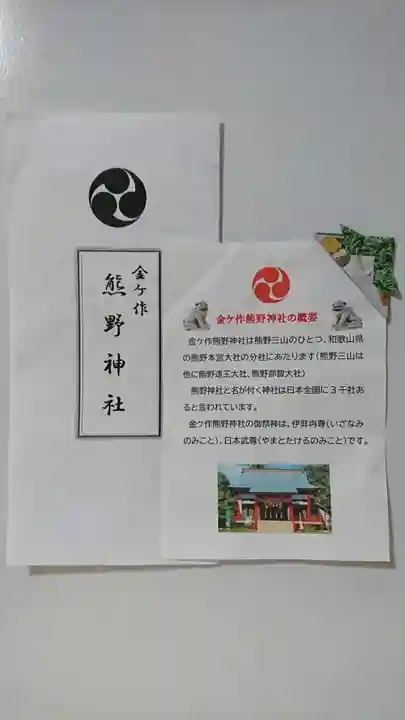 金ケ作
熊野神社
金ケ作熊野神社の概要
金ケ作熊野神社は熊野三山のひとつ、和歌山県
の熊野本宮大社の分社にあたります(熊野三山は
他に熊野速玉大社、熊野那智大社)
熊野神社と名が付く神社は日本全国に3千社あ
ると言われています。
金ケ作熊野神社の御祭神は、伊弉冉尊(いざなみ
のみこと)、日本武尊(やまとたけるのみこと)です。